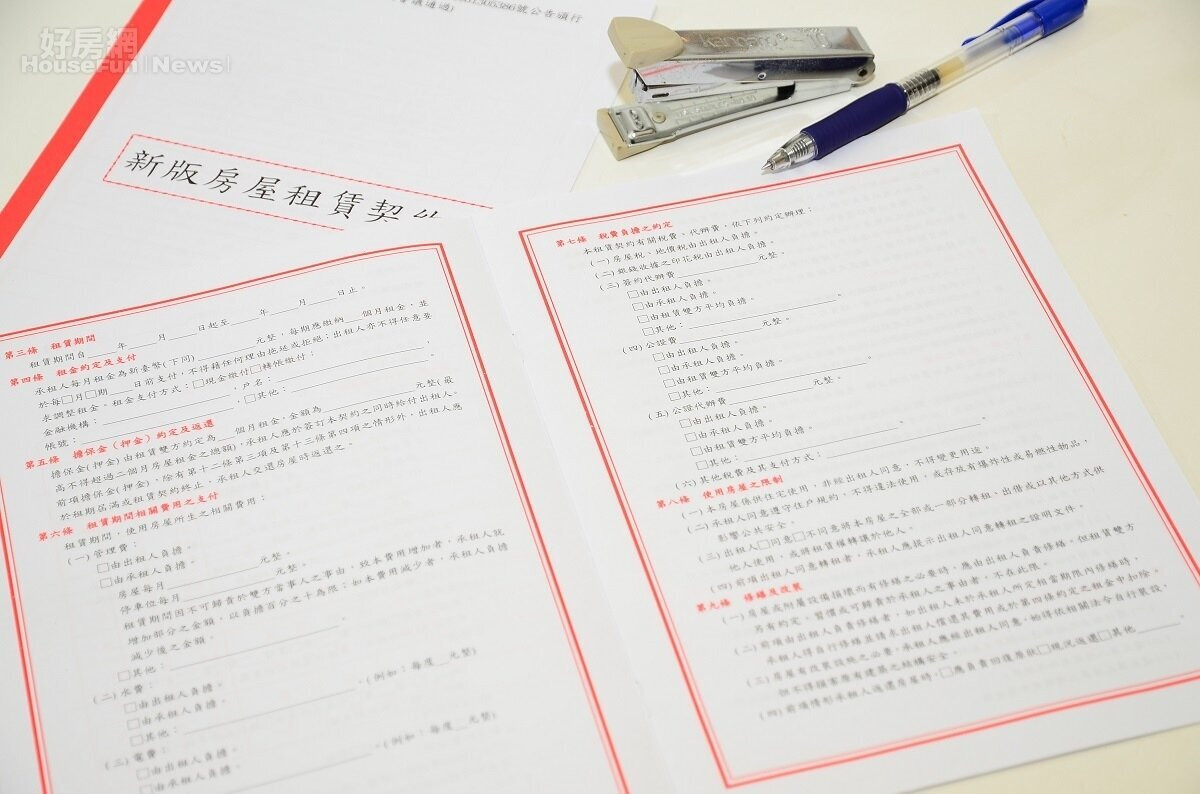 好房網
HouseFun News
305386號公告頒行
會議通過)
新版房屋租賃契
第三條 租賃期間
租賃期間自 年 月 日起至 年 月 日止。
第四條 租金約定及支付
承租人每月租金為新臺幣(下同) 元整,每期應繳納 個月租金,並
於每□月□期 日前支付,不得藉任何理由拖延或拒絕;出租人亦不得任意要
求調整租金。租金支付方式:□現金繳付□轉帳繳付:
金融機構: ,戶名: ,
帳號: 。□其他: 。
第五條 擔保金(押金)約定及返還
擔保金(押金)由租賃雙方約定為 個月租金,金額為 元整(最
高不得超過二個月房屋租金之總額)。承租人應於簽訂本契約之同時給付出租人。
前項擔保金(押金),除有第十二條第三項及第十三條第四項之情形外,出租人應
於租期屆滿或租賃契約終止,承租人交還房屋時返還之。
第六條 租賃期間相關費用之支付
租賃期間,使用房屋所生之相關費用:
(一)管理費:
□由出租人負擔。
□由承租人負擔。
房屋每月 元整。
停車位每月 元整。
租賃期間因不可歸責於雙方當事人之事由,致本費用增加者,承租人就
增加部分之金額,以負擔百分之十為限;如本費用減少者,承租人負擔
減少後之金額。
□其他: 。
(二)水費:
□由出租人負擔。
□由承租人負擔。
□其他: 。(例如:每度 元整)
(三)電費:
□由出租人負擔。
□由承租人負擔。
。(例如:每度 元整)
第七條 稅費負擔之約定
本租賃契約有關稅費、代辦費,依下列約定辦理:
(一)房屋稅、地價稅由出租人負擔。
(二)銀錢收據之印花稅由出租人負擔。
(三)簽約代辦費 元整。
□由出租人負擔。
□由承租人負擔。
□由租賃雙方平均負擔。
□其他: 。
(四)公證費 元整。
□由出租人負擔。
□由承租人負擔。
□由租賃雙方平均負擔。
□其他: 。
(五)公證代辦費 元整。
□由出租人負擔。
□由承租人負擔。
□由租賃雙方平均負擔。
□其他: 。
(六)其他稅費及其支付方式: 。
第八條 使用房屋之限制
(一)本房屋係供住宅使用。非經出租人同意,不得變更用途。
(二)承租人同意遵守住戶規約,不得違法使用,或存放有爆炸性或易燃性物品,
影響公共安全。
(三)出租人□同意□不同意將本房屋之全部或一部分轉租、出借或以其他方式供
他人使用,或將租賃權轉讓於他人。
(四)前項出租人同意轉租者,承租人應提示出租人同意轉租之證明文件。
第九條 修繕及改裝
(一)房屋或附屬設備損壞而有修繕之必要時,應由出租人負責修繕。但租賃雙方
另有約定、習慣或可歸責於承租人之事由者,不在此限。
(二)前項由出租人負責修繕者,如出租人未於承租人所定相當期限內修繕時,
承租人得自行修繕並請求出租人償還其費用或於第四條約定之租金中扣除。
(三)房屋有改裝設施之必要,承租人應經出租人同意,始得依相關法令自行裝設,
但不得損害原有建築之結構安全。
(四)前項情形承租人返還房屋時,□應負責回復原狀□現況返還□其他 。